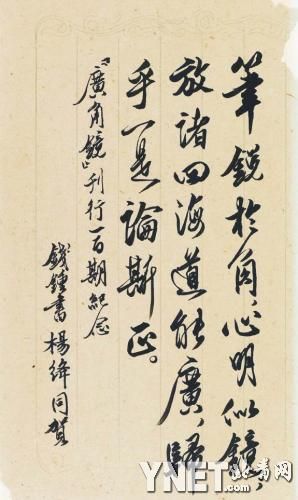 筆銳於角、心明似鏡、
放諸四海道能廣、歸
乎一是論斯正。
『廣角鏡』刊行一百期紀念
錢鍾書 楊絳同賀
YNET.com 北青网